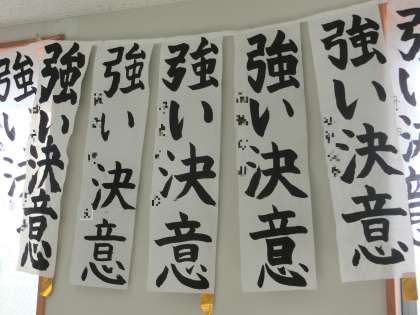 強い決意
強い決意
強い決意
強い決意
強い決意
強い決意
強い決意
強い決意